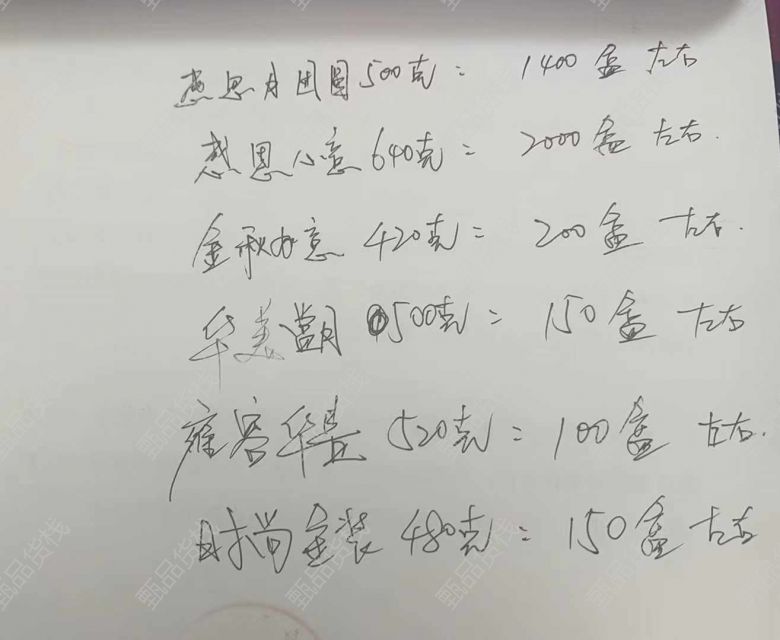 感恩月团圆500克：1400盒左右
感恩心意640克：2000盒左右.
金秋如意420克：200盒左右.
华美赏月500克：150盒左右
雍容华贵520克：100盒左右.
时尚金装480克：150盒左右
甄品货栈